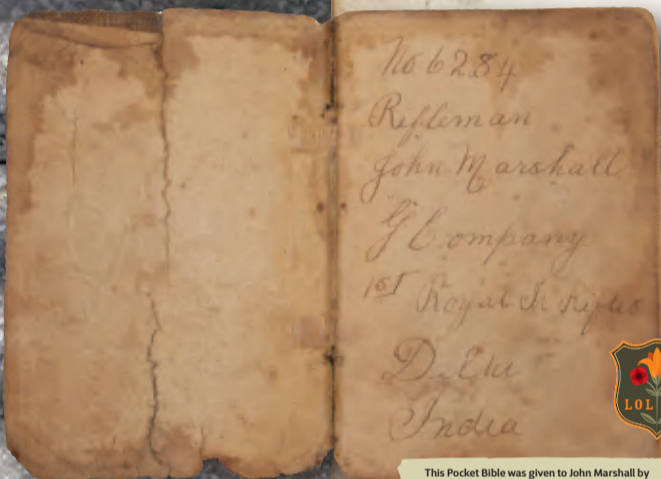 No 6284
Rifleman
John Marshall
G Company
1st Royal Ir Rifles
Delhi
India
LOL
This Pocket Bible was given to John Marshall by